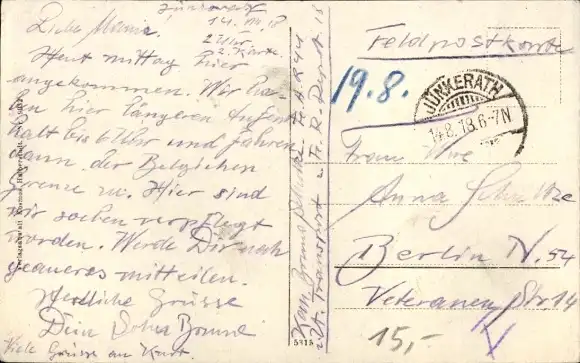 Jünkerath
14. VIII. 18
2 Uhr
2. Karte.
Liebe Mama.
Heut mittag hier
angekommen. Wir ha-
ben hier längeren Aufent
halt bis 6 Uhr und fahren
dann der Belgischen
Grenze zu. Hier sind
wir soeben verpflegt
worden. Werde Dir noch
genaueres mitteilen.
Herzliche Grüsse
Dein Sohn Bruno
Viele Grüsse an Kurt
Kan. Bruno
Transport
5915
Feldpostkarte
19.8.
JÜNKERATH
14.8.18.6-7N
Frau Wwe
Anna Schultze
Berlin N. 54
Veteranen Str 14
15,-